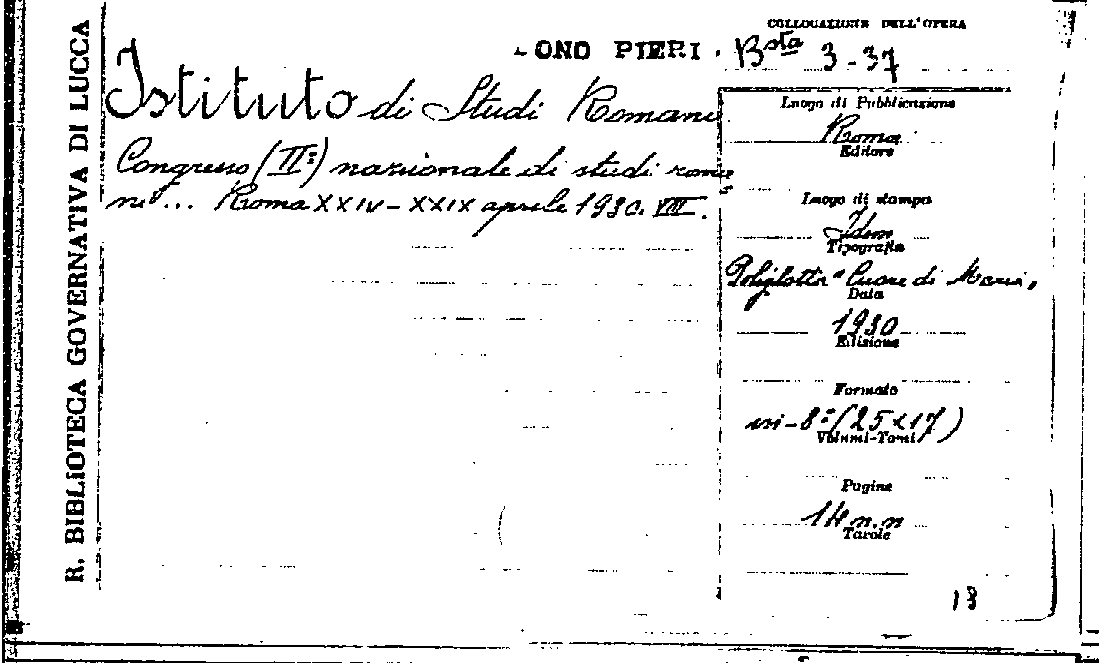 R. BIBLIOTECA GOVERNATIVA DI LUCCA
COLLOCAZIONE DELL'OPERA
ONO PIERI. Bsta 3-37
Istituto di Studi Romani
Congresso (IIº) nazionale di studi roma
ni... Roma XXIV-XXIX aprile 1930. VIII.
Luogo di Pubblicazione
Roma
Editore
Luogo di stampa
Idem
Tipografia
Poliglotta "Cuore di Maria"
Data
1930
Edizione
Formato
in-8º (25x17)
Volumi-Tomi
Pagine
14 n.n
Tavole